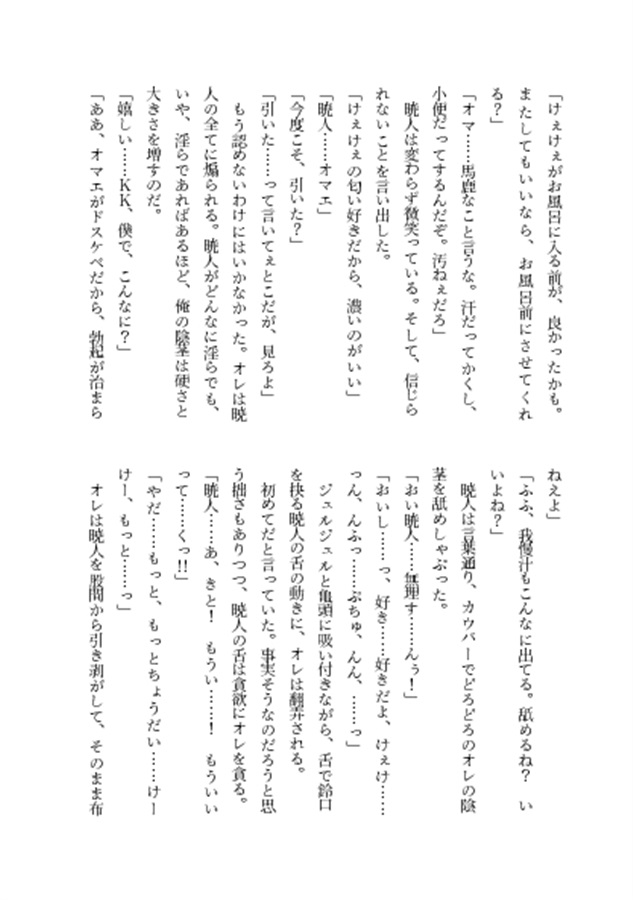 「けぇけぇがお風呂に入る前が、良かったかも。
またしてもいいなら、お風呂前にさせてくれ
る？」
「オマ……馬鹿なこと言うな。汗だってかくし、
小便だってするんだぞ。汚ねぇだろ」
　暁人は変わらず微笑っている。そして、信じら
れないことを言い出した。
「けぇけぇの匂い好きだから、濃いのがいい」
「暁人……オマエ」
「今度こそ、引いた？」
「引いた……って言いてぇとこだが、見ろよ」
　もう認めないわけにはいかなかった。オレは暁
人の全てに煽られる。暁人がどんなに淫らでも、
いや、淫らであればあるほど、俺の陰茎は硬さと
大きさを増すのだ。
「嬉しい……ＫＫ、僕で、こんなに？」
「ああ、オマエがドスケベだから、勃起が治まら
ねえよ」
「ふふ、我慢汁もこんなに出てる。舐めるね？　い
いよね？」
　暁人は言葉通り、カウパーでどろどろのオレの陰
茎を舐めしゃぶった。
「おい暁人……無理す……んぅ！」
「おいし……っ、好き……好きだよ、けぇけ……
っん、んふっ……ぷちゅ、んん、……っ」
　ジュルジュルと亀頭に吸い付きながら、舌で鈴口
を抉る暁人の舌の動きに、オレは翻弄される。
　初めてだと言っていた。事実そうなのだろうと思
う拙さもありつつ、暁人の舌は貪欲にオレを貪る。
「暁人……あ、きと！　もうい……！　もういい
って……くっ!!」
「やだ……もっと、もっとちょうだい……けー
けー、もっと……っ」
　オレは暁人を股間から引き剥がして、そのまま布